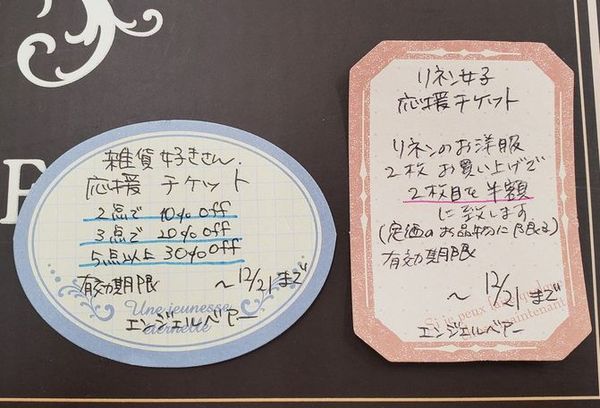 雑貨好きさん.
応援 チケット
2点で 10% off
3点で 20% off
5点以上 30% off
有効期限
～12/21まで
Une jeunesse
éternelle
エンジェルベアー
リネン女子
応援チケット
リネンのお洋服
2枚 お買い上げで
2枚目を半額
に致します
(定価のお品物に限る)
有効期限
～ 12/21まで
エンジェルベアー